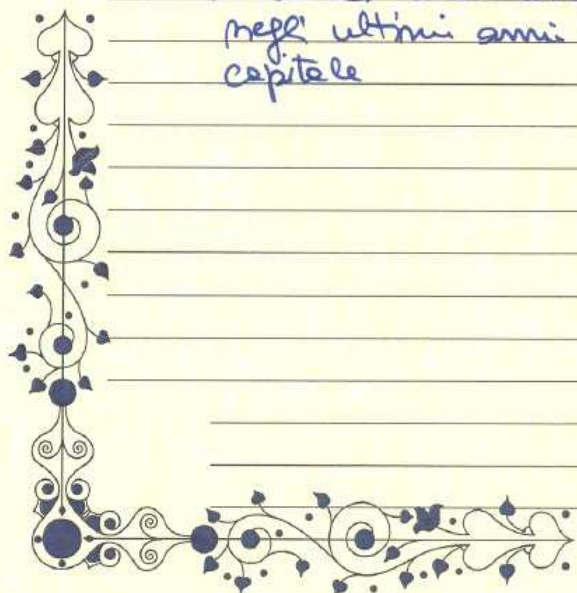 negli ultimi anni
capitale